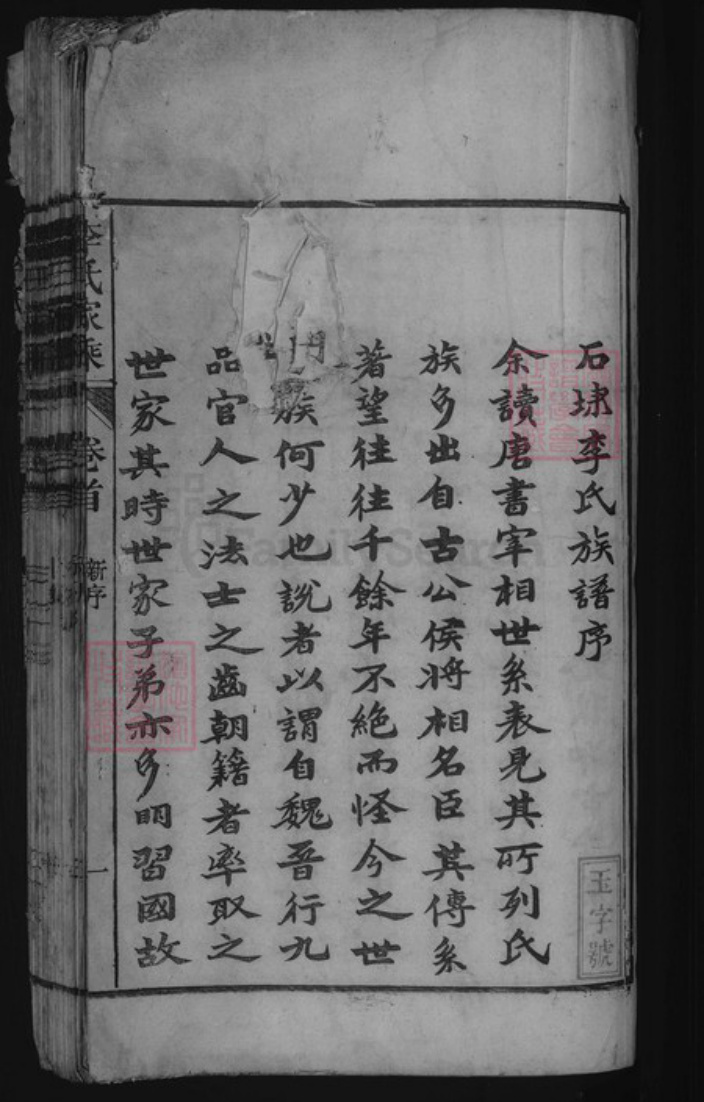 石埭李氏族譜序
余讀唐書宰相世系表見其所列氏
族多出自古公侯將相名臣其傳系
著望往往千餘年不絕而怪今之世
門族何少也説者以謂自魏晉行九
品官人之法士之齒朝籍者率取之
世家其時世家子弟亦多明習國故
李氏家乘
卷首
新序
一
玉字號
FamilySearch